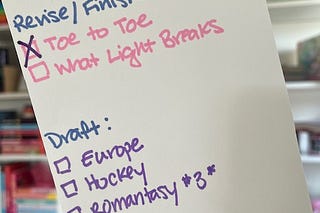 Revise/Finish
Toe to Toe
What Light Breaks
Draft:
Europe
Hockey
Romantasy *3*